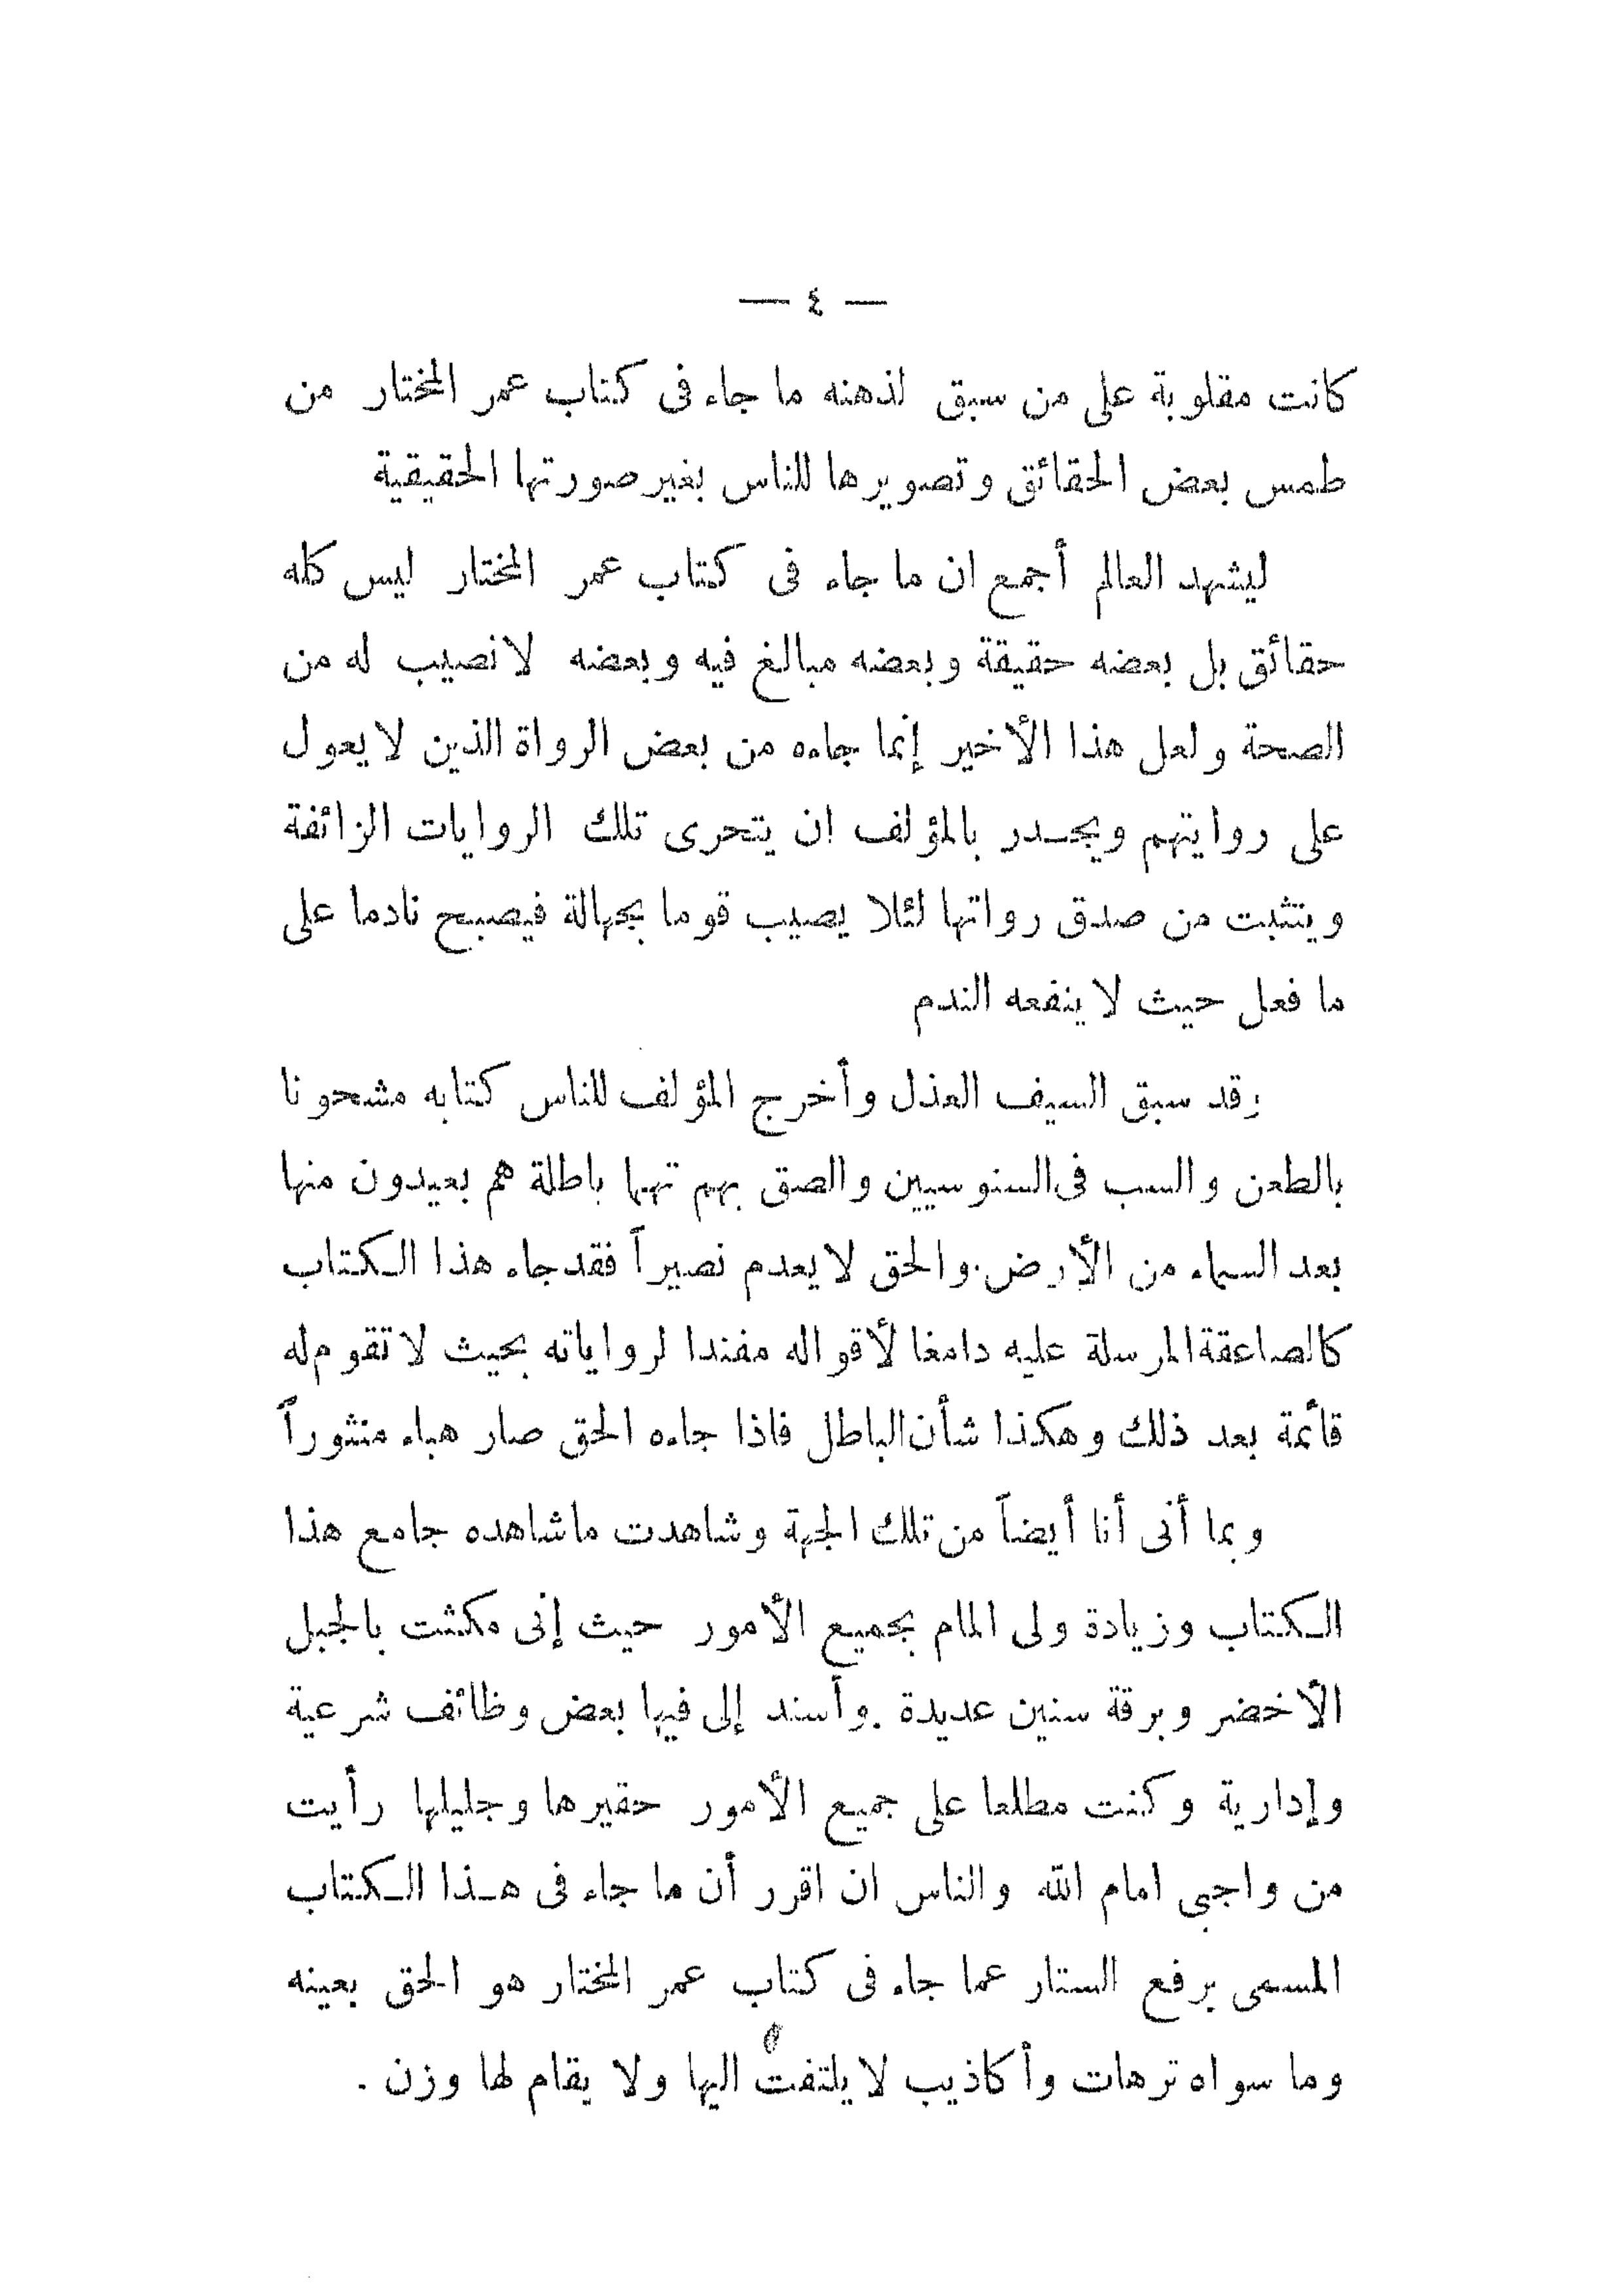 — ٤ —
كانت مقلوبة على من سبق لذهنه ما جاء فى كتاب عمر المختار من
طمس بعض الحقائق وتصويرها للناس بغير صورتها الحقيقية
ليشهد العالم أجمع ان ما جاء فى كتاب عمر المختار ليس كله
حقائق بل بعضه حقيقة وبعضه مبالغ فيه وبعضه لا نصيب له من
الصحة ولعل هذا الأخير إنما جاءه من بعض الرواة الذين لا يعول
على روايتهم ويجـدر بالمؤلف ان يتحرى تلك الروايات الزائفة
ويتثبت من صدق رواتها لئلا يصيب قوما بجهالة فيصبح نادما على
ما فعل حيث لا ينفعه الندم
وقد سبق السيف العذل وأخرج المؤلف للناس كتابه مشحونا
بالطعن والسب فى السنوسيين والصق بهم تهما باطلة هم بعيدون منها
بعد السماء من الأرض. والحق لا يعدم نصيراً فقد جاء هذا الـكتاب
كالصاعقة المرسلة عليه دامغا لأقواله مفندا لرواياته بحيث لا تقوم له
قائمة بعد ذلك وهكذا شأن الباطل فاذا جاءه الحق صار هباء منثوراً
وبما أنى أنا أيضاً من تلك الجهة وشاهدت ما شاهده جامع هذا
الـكتاب وزيادة ولى المام بجميع الأمور حيث إنى مكثت بالجبل
الأخضر وبرقة سنين عديدة وأسند إلى فيها بعض وظائف شرعية
وإدارية وكنت مطلعا على جميع الأمور حقيرها وجليلها رأيت
من واجبى امام الله والناس ان اقرر أن ما جاء فى هـذا الـكتاب
المسمى برفع الستار عما جاء فى كتاب عمر المختار هو الحق بعينه
وما سواه ترهات وأكاذيب لا يلتفت اليها ولا يقام لها وزن .